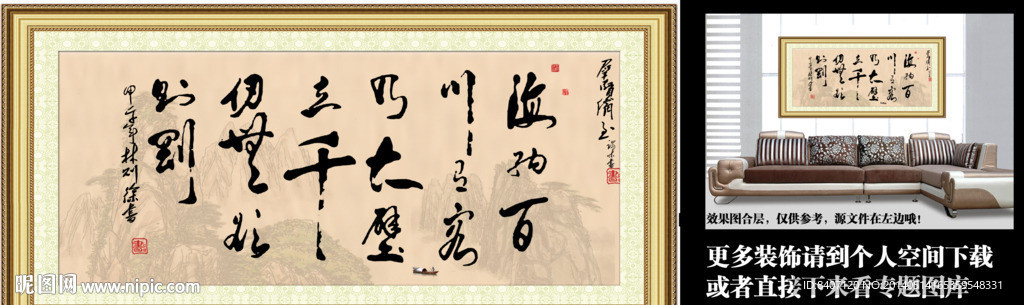 海纳百
川有容
乃大壁
立千
仞無欲
则剛
林则徐書
昵图网 www.nipic.com
效果图合层，仅供参考，源文件在左边哦!
更多装饰请到个人空间下载
或者直接下来看专题图库